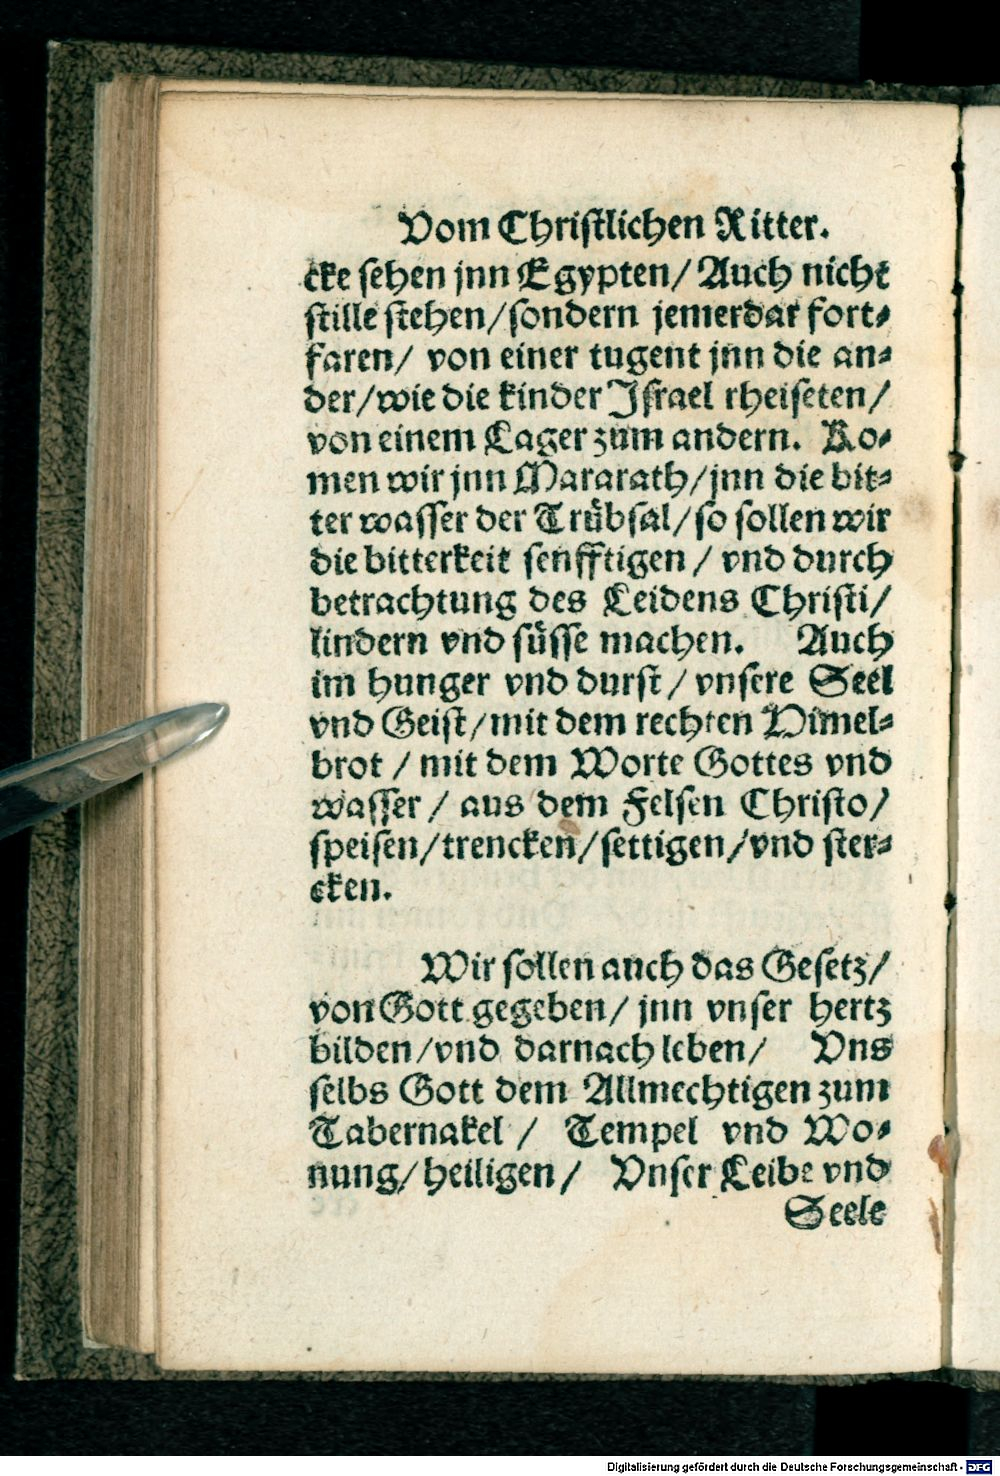 Vom Christlichen Ritter.
cke sehen jnn Egypten/ Auch nicht
stille stehen/sondern jemerdar fort⸗
faren/ von einer tugent jnn die an⸗
der/wie die kinder Israel rheiseten/
von einem Lager zum andern. Ko⸗
men wir jnn Mararath/jnn die bit⸗
ter wasser der Trübsal/so sollen wir
die bitterkeit senfftigen/ vnd durch
betrachtung des Leidens Christi/
lindern vnd süsse machen. Auch
im hunger vnd durst/ vnsere Seel
vnd Geist/mit dem rechten Himel⸗
brot / mit dem Worte Gottes vnd
wasser / aus dem Felsen Christo/
speisen/trencken/settigen/vnd ster⸗
cken.
Wir sollen auch das Gesetz/
von Gott gegeben/ jnn vnser hertz
bilden/vnd darnach leben/ Vns
selbs Gott dem Allmechtigen zum
Tabernakel / Tempel vnd Wo⸗
nung/heiligen/ Vnser Leibe vnd
Seele
Digitalisierung gefördert durch die Deutsche Forschungsgemeinschaft - DFG